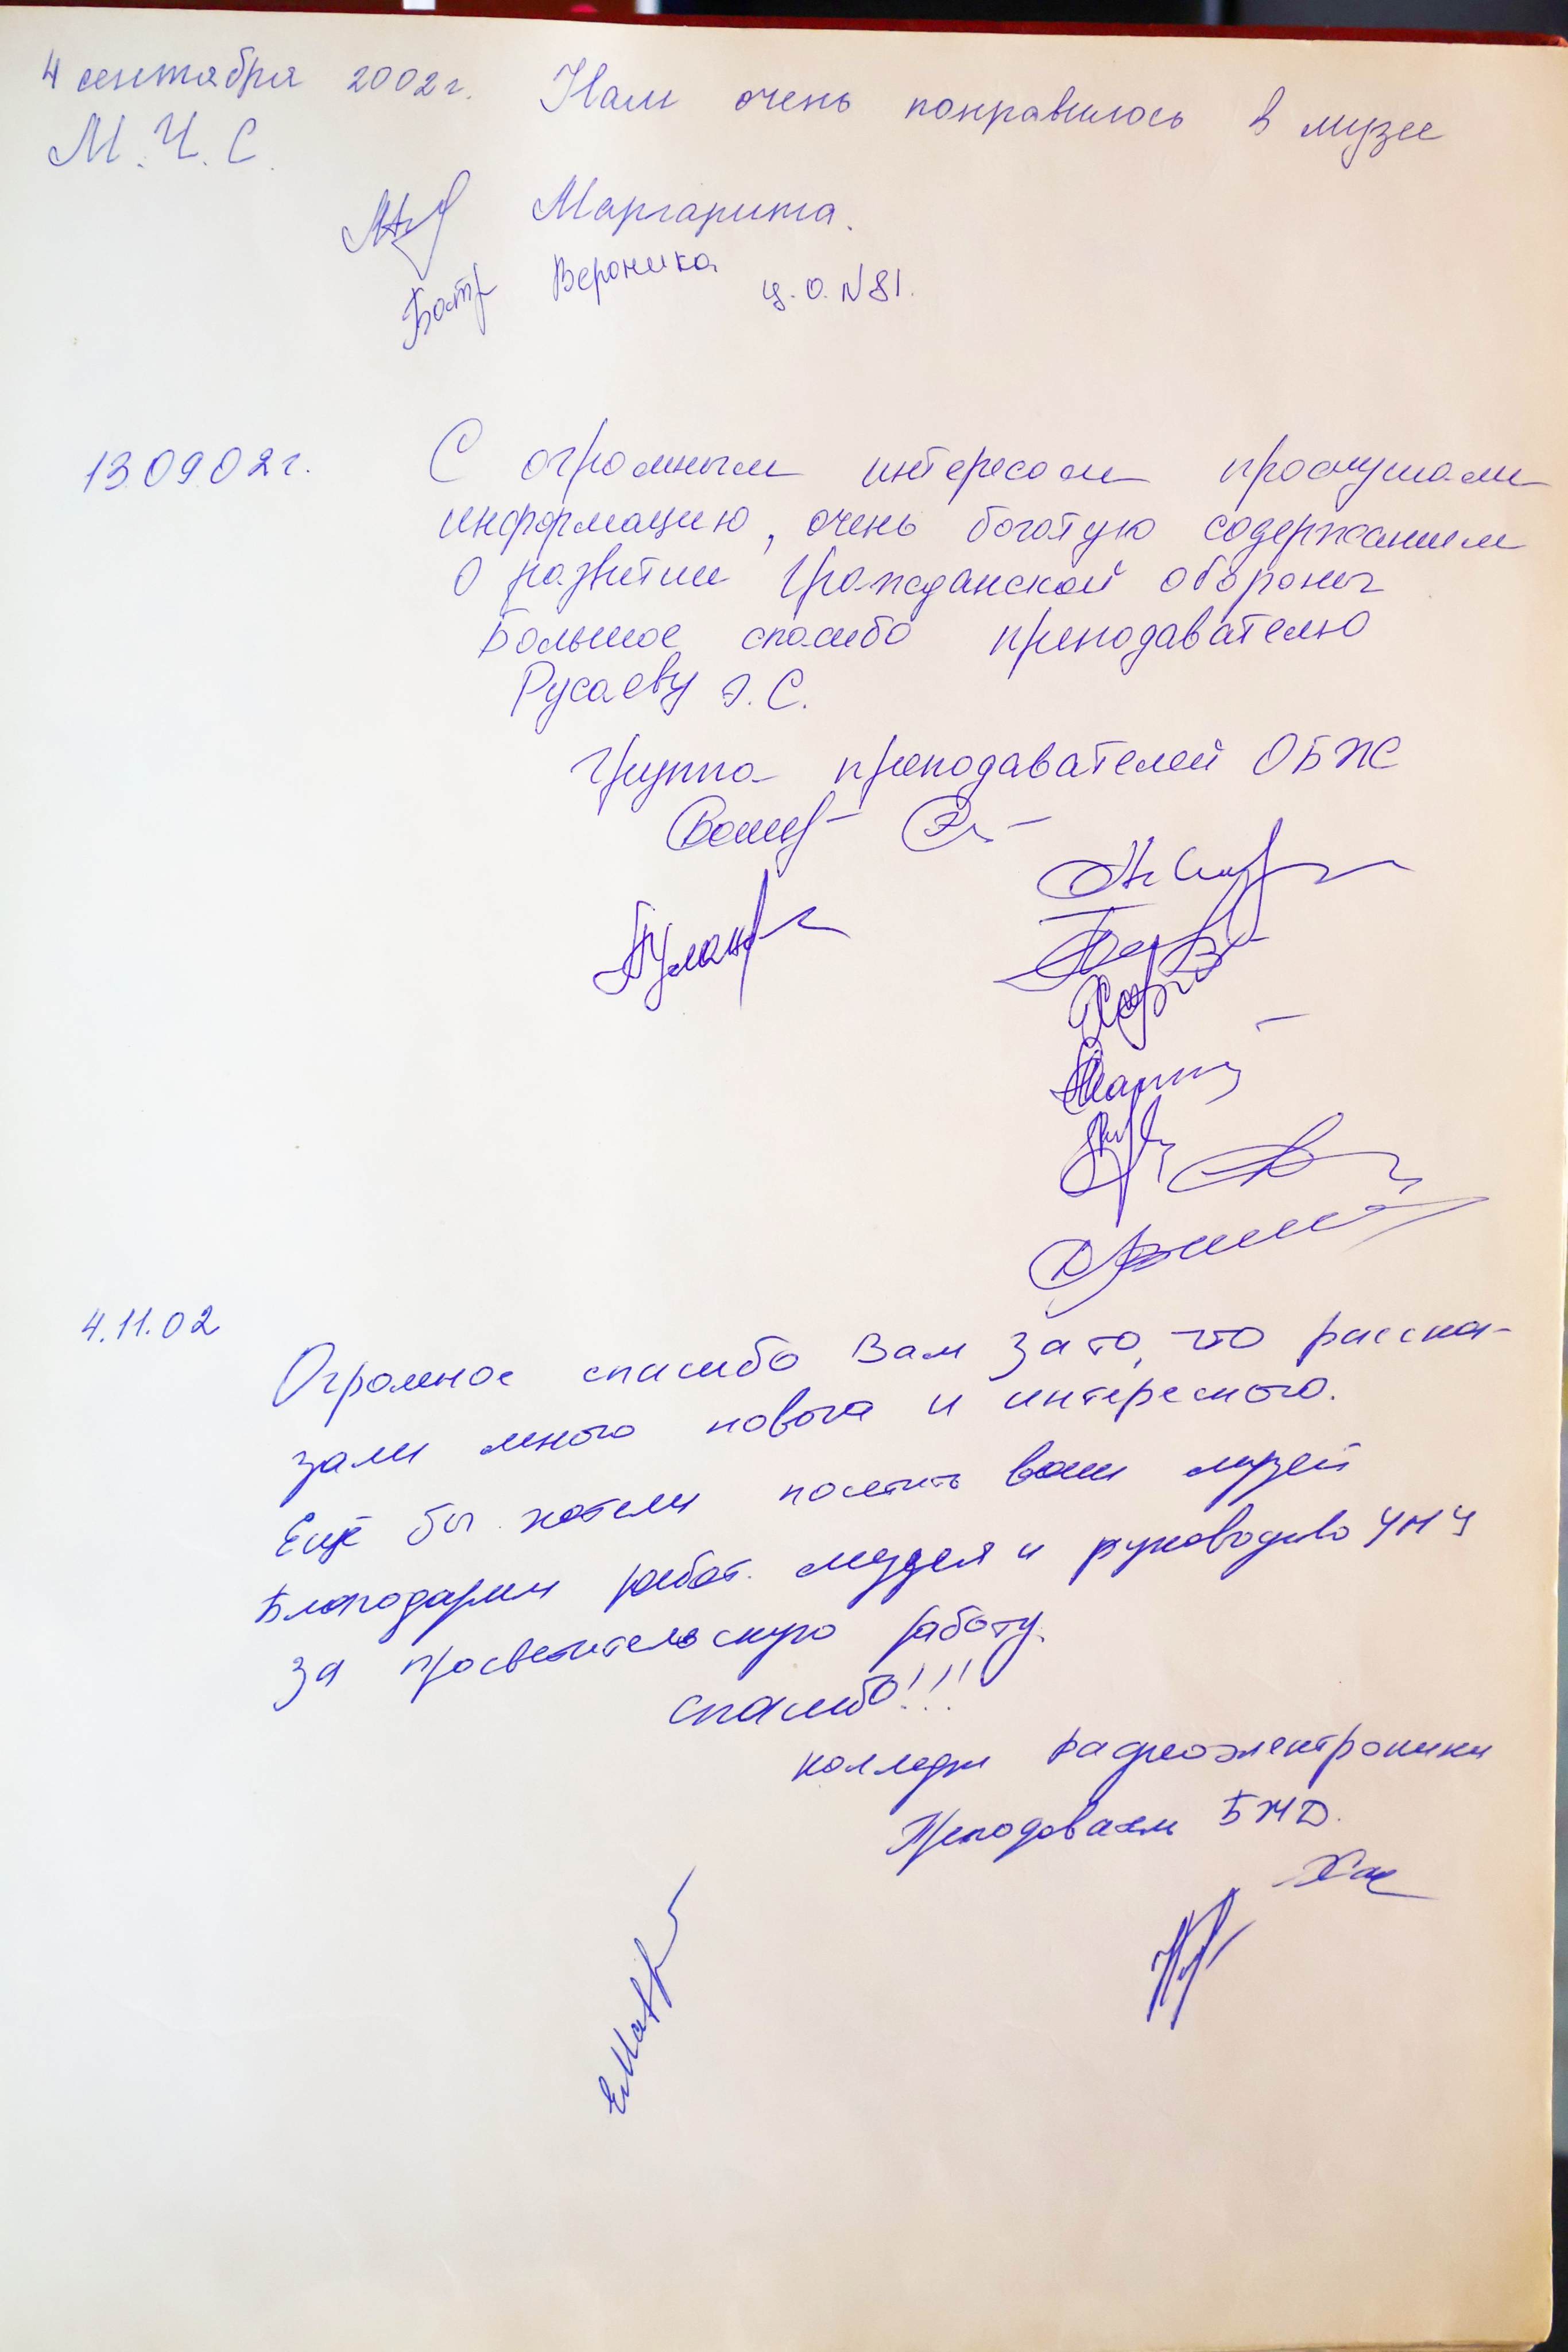 4 сентября 2002г. Нам очень понравилось в музее
М.Ч.С.
Маргарита.
Вероника ц.о. N81.
13.09.02г. С огромным интересом прослушали
информацию, очень богатую содержанием
о развитии Гражданской обороны
Большое спасибо преподавателю
Русаеву Г.С.
Группа преподавателей ОБЖ
4.11.02
Огромное спасибо Вам за то, что расска-
зали много нового и интересного.
Ещё бы хотели посетить ваш музей
Благодарим работ. музея и руководство УМЦ
за просветительскую работу.
спасибо!!!
колледж радиоэлектроники
Преподаватели БЖД.